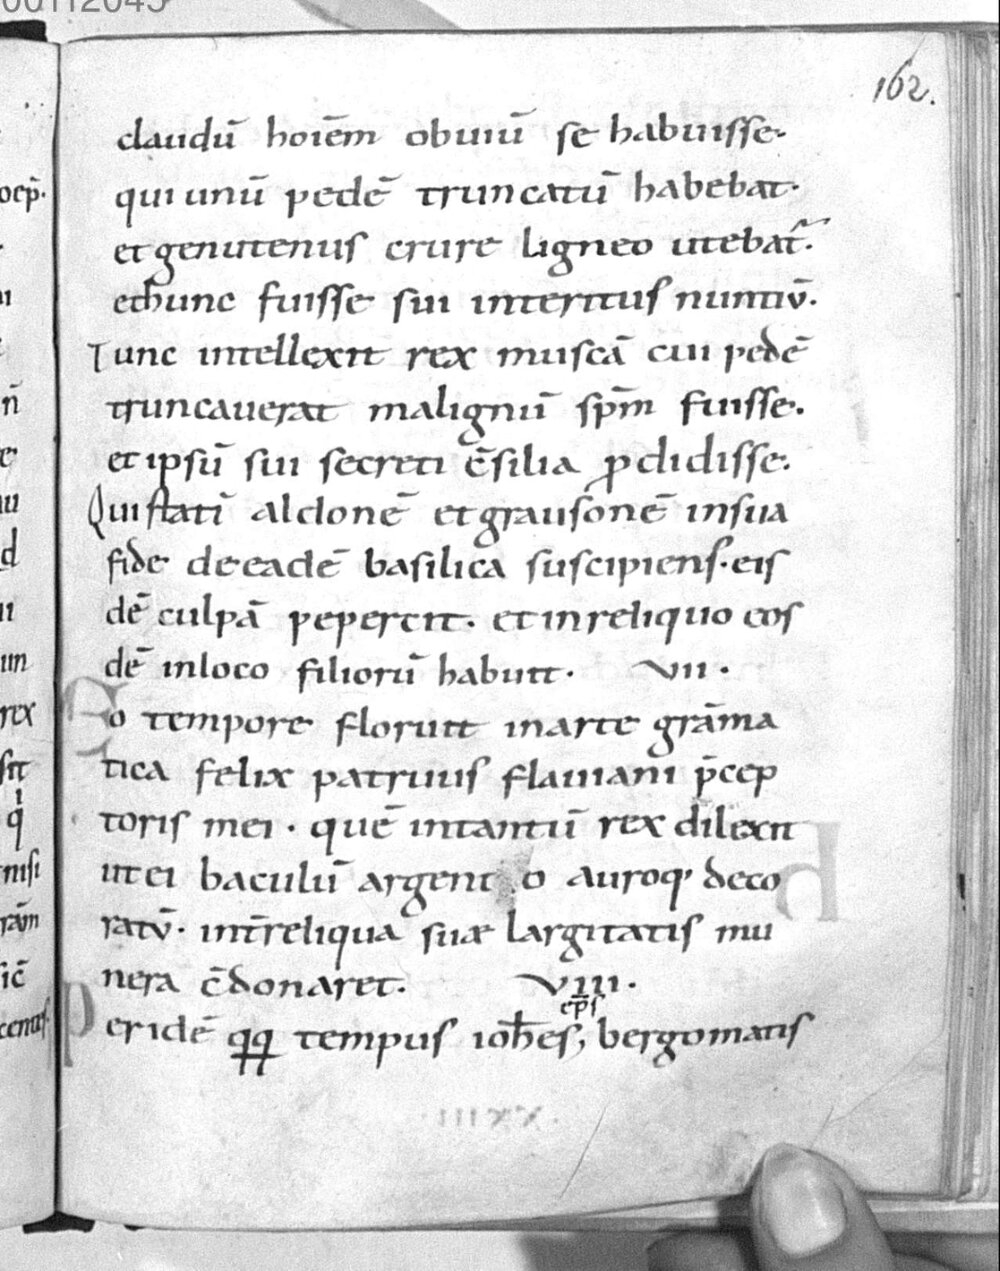 162.
claudū hoiēm obuiū se habuisse.
qui unū pedē truncatū habebat.
et genutenus crure ligneo utebat̃.
et hunc fuisse sui interitus nuntiū.
Tunc intellexit rex muscā cui pedē
truncauerat malignū sp̄m fuisse.
et ipsū sui secreti c̄silia ꝓdidisse.
Qui statī aldonē et grausonē in sua
fide de eadē basilica suscipiens. eis
dē culpā pepercit. et in reliquo eos
dē in loco filiorū habuit. VII.
Eo tempore floruit in arte grāma
tica felix patruus flauiani p̄cep
toris mei. quē in tantū rex dilexit
ut ei baculū argento auroq; deco
ratū. int̄ reliqua suæ largitatis mu
nera c̄donaret. VIII.
ep̄s
Per idē qq tempus ioh̄es, bergomatis
XXIII